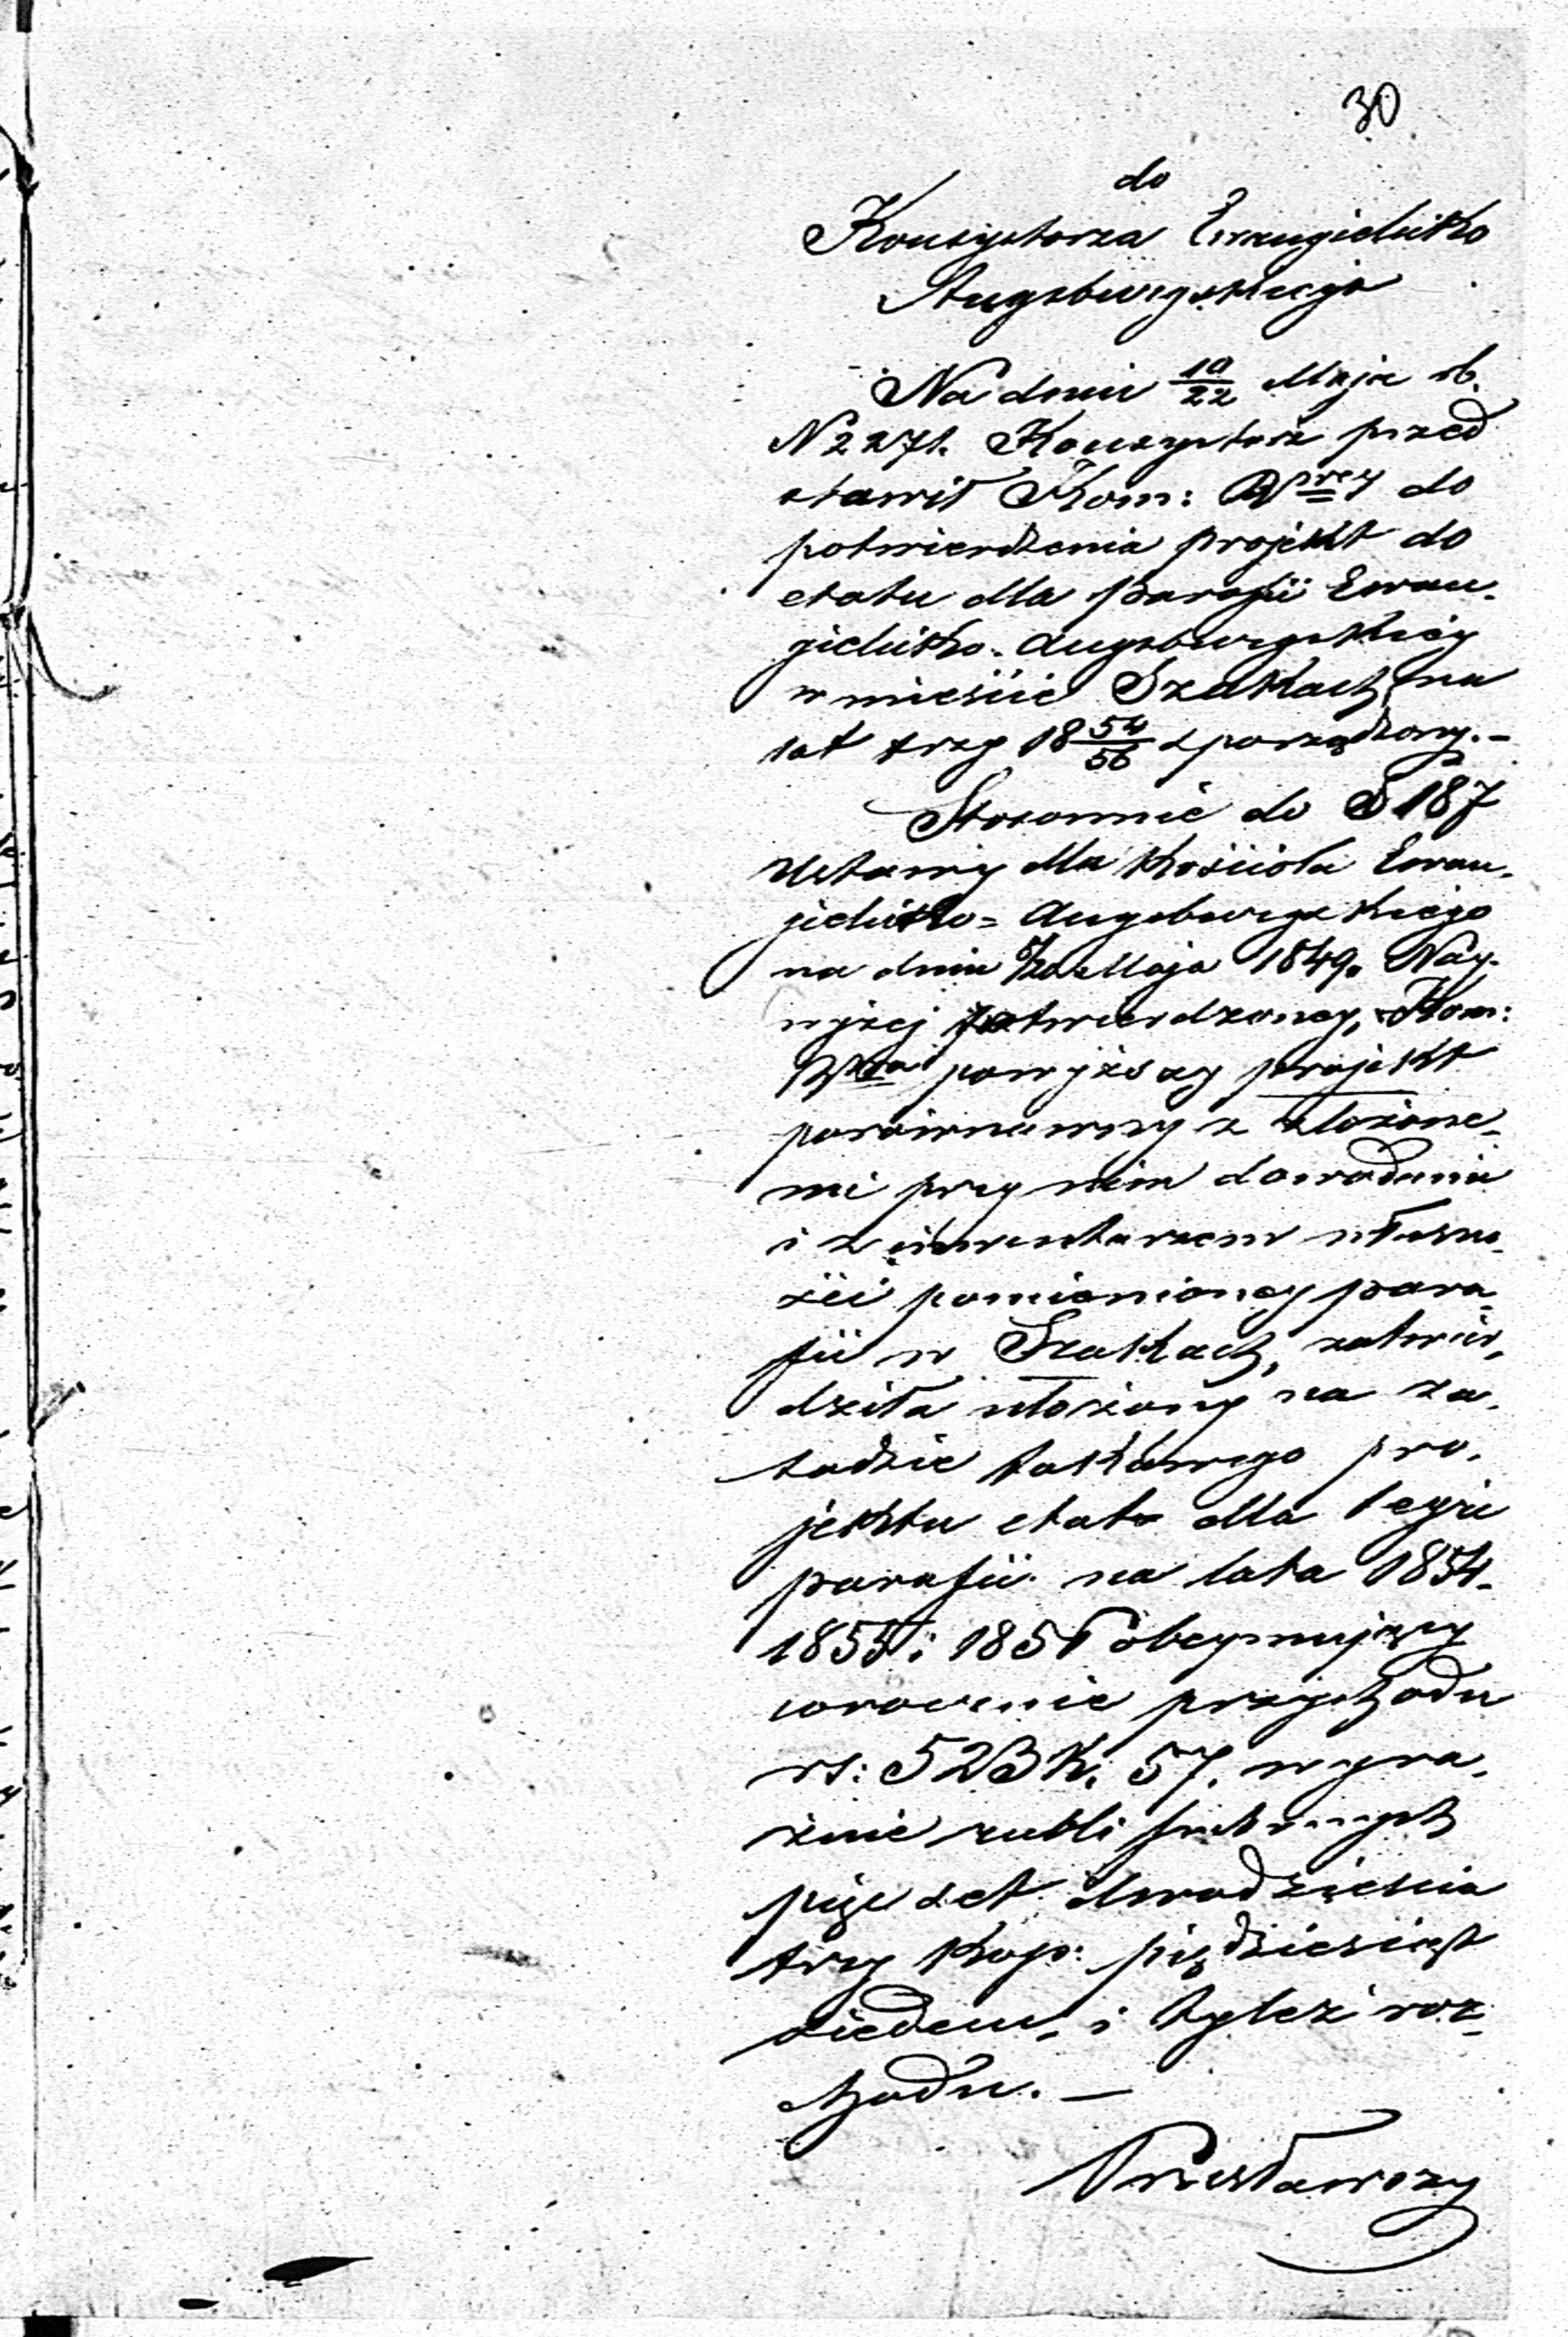 30
do
Konsystorza Ewangielicko
Augsburgskiego
Na dniu 10/22 Maja rb.
N 2271. Konsystorz przed
stawił Kom: Rząwey do
potwierdzenia projekt do
etatu dla parafii Ewan-
gielicko-Augsburgskiéy
w mieście Szakach na
lat trzy 18 54/56 sporządzony.-
Stosownie do § 187
Ustawy dla Kościoła Ewan-
gielicko=Augsburgskiego
na dniu Maja 1849. Nay-
wyżej potwierdzoney, Kom:
powyższy projekt
porównawszy z złożone-
mi przy nim dowodami
i z inwentarzem własno-
ści pomienioney para-
fii w Szakach, zatwier-
dziła ułożony na za-
sadzie takowego pro-
jektu etat dla teyże
parafii na lata 1854.
1855 i 1856 obeymujący
corocznie przychodu
rs: 523 k: 57. wyra-
źnie rubli srebrnych
pięćset dwadzieścia
trzy kop: pięćdziesiąt
siedem, i tyleż roz-
chodu. —